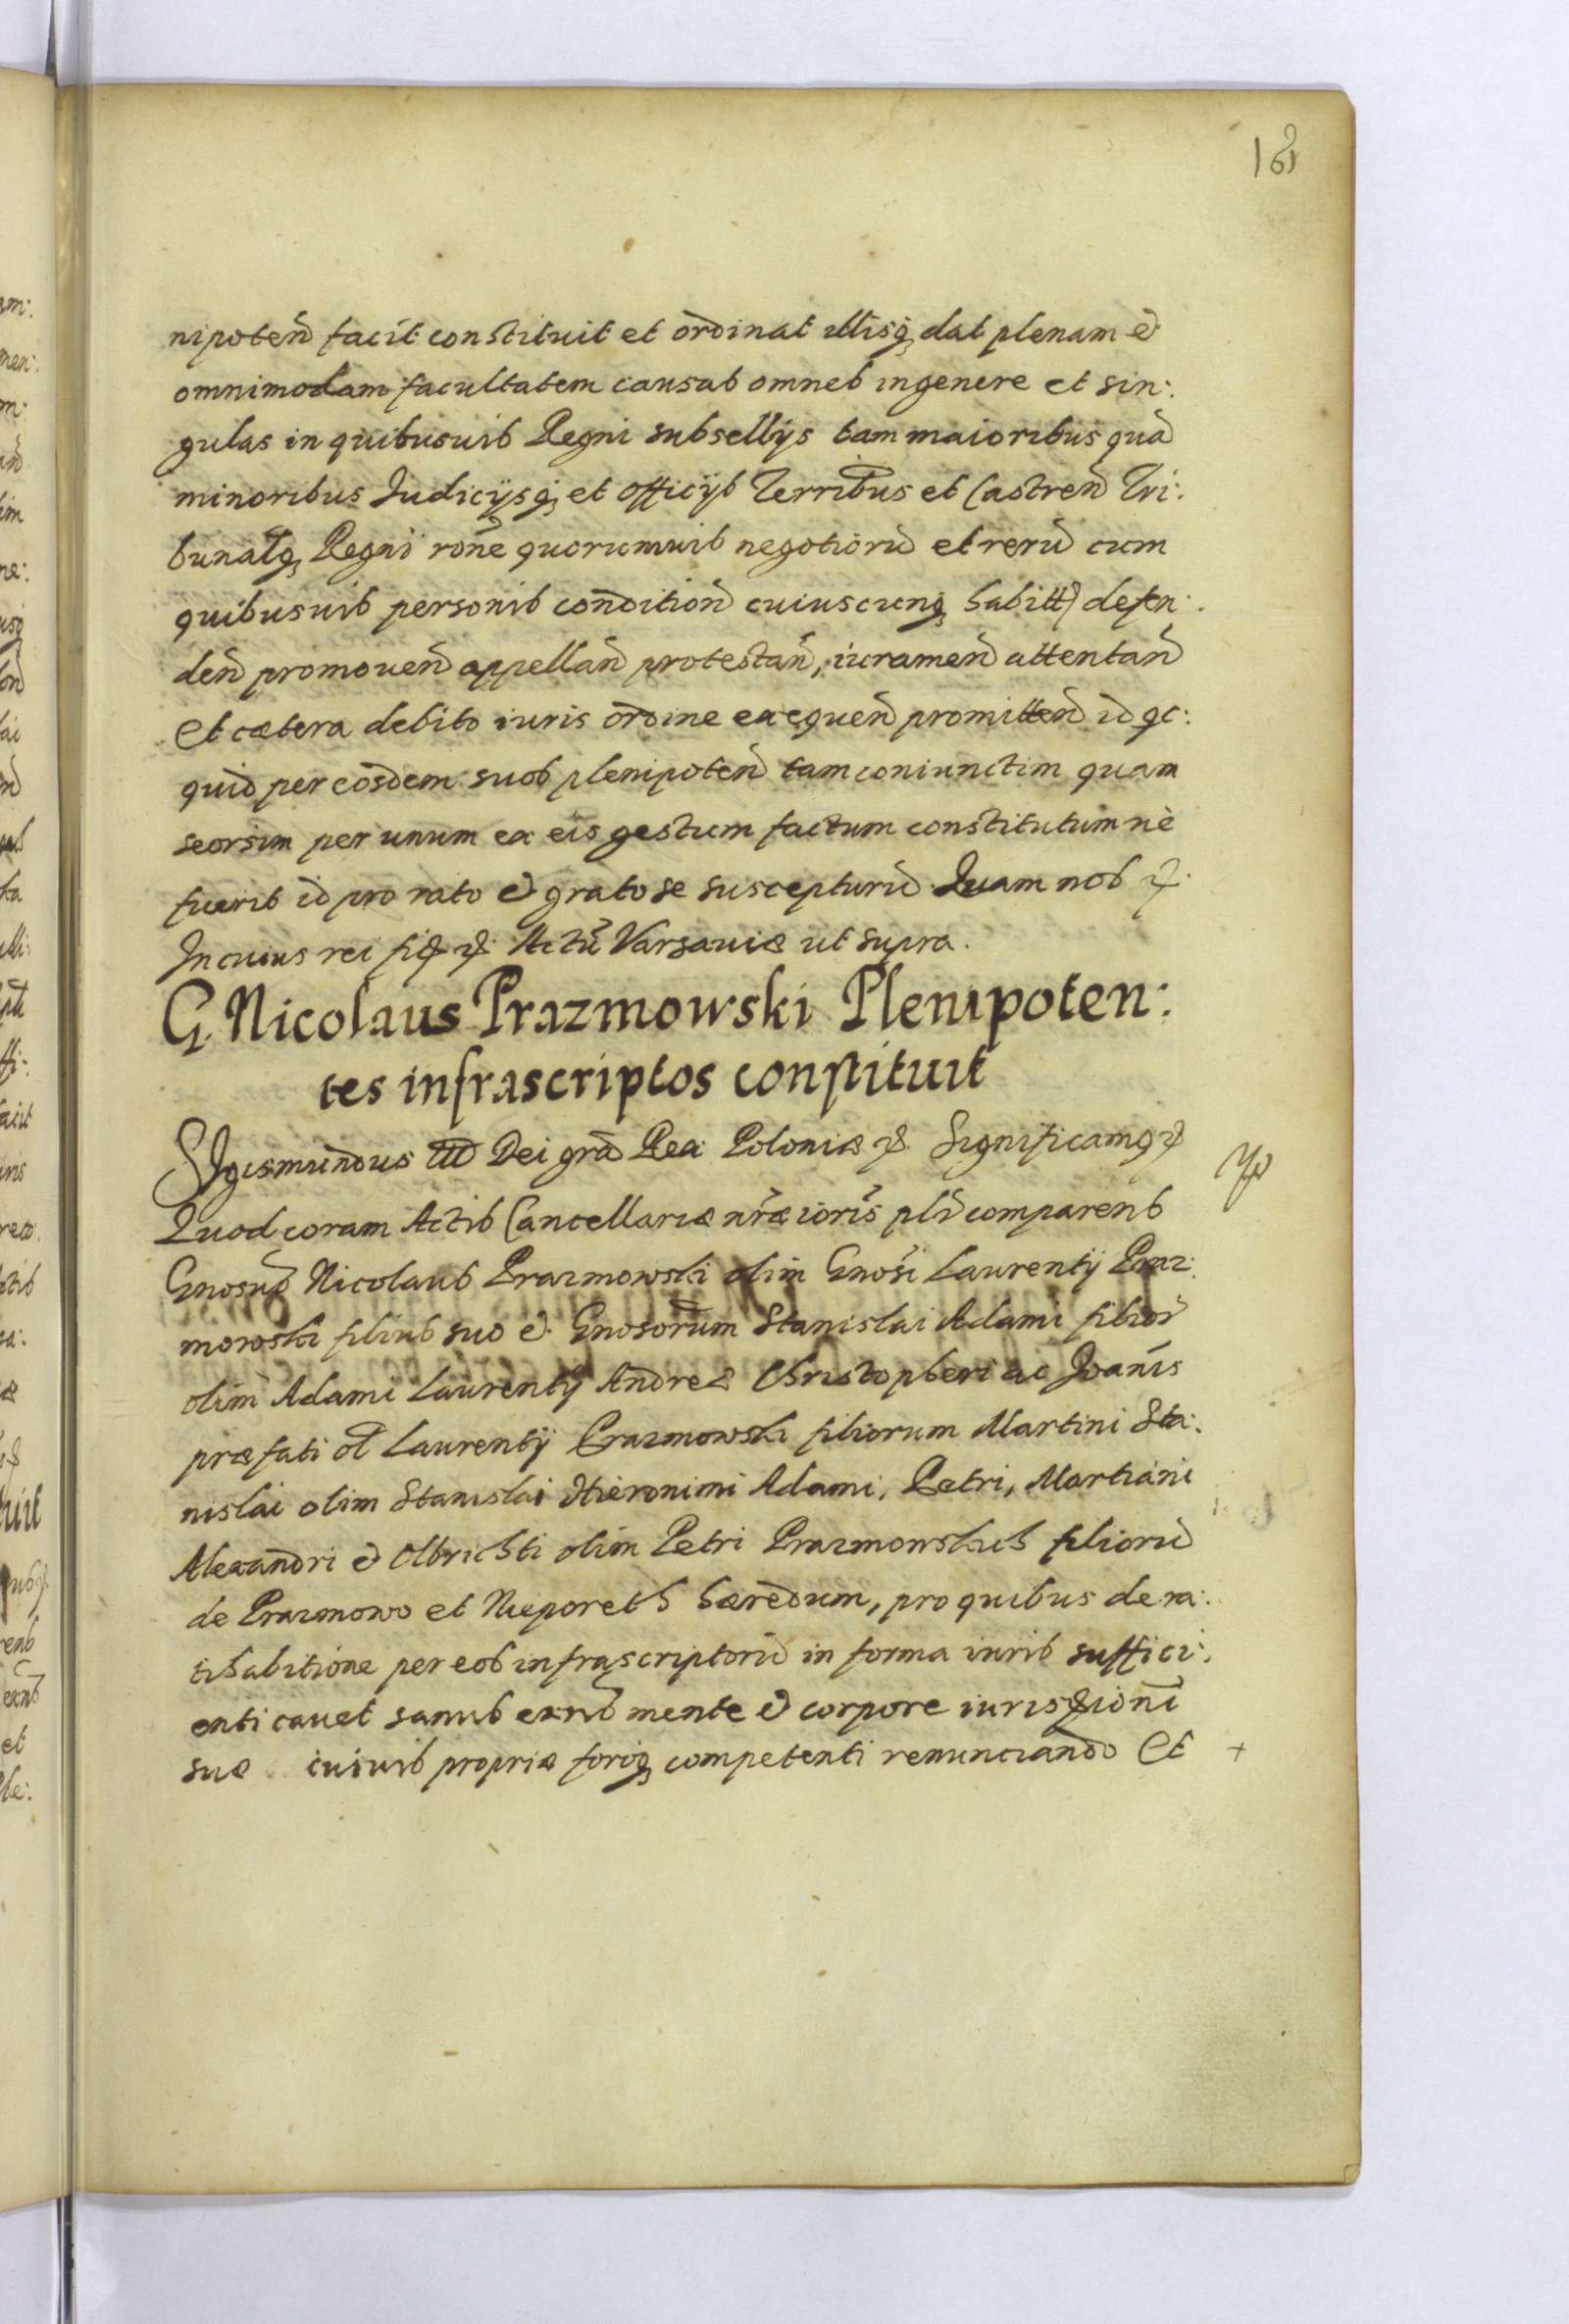 161
nipoten̄ facit constituit et ordinat illisq́ dat plenam et
omnimodam facultatem causas omnes in genere et sin:
gulas in quibusvis Regni subsellijs tam maioribus quā
minoribus Judicijsq́ et officijs Terrib̄us et Castren̄ Tri:
bunalq́ Regni rōne quorumvis negotiorū et rerū cum
quibusvis personis condition̄ cuiuscunq́ habitt defen:
den̄ promouen̄ appellan̄ protestan̄, iuramen̄ attentan̄
Et cætera debito iuris ordine exequen̄ promitten̄ id qc:
quid per eosdem suos plenipoten̄ tam coniunctim quam
seorsim per unum ex eis gestum factum constitutumuè
fuerit id pro rato et grato se suscepturū Quam nos &
In cuius rei fi& & Actū Varsaviæ ut supra.
G. Nicolaus Prazmowski Plenipoten:
tes infrascriptos constituit
Sigismundus III Dei grā Rex Poloniæ & Significamq &
Quod coram Actis Cancellariæ nr̄æ ioris pl̄r comparens
Gnosus Nicolaus Prazmowski olim Gnosi Laurentij Praz:
mowski filius suo et Gnosorum Stanislai Adami filior̄
olim Adami Laurentij Andreæ Christopheri ac Joānis
præfati ol̄ Laurentij Prazmowski filiorum Martini Sta:
nislai olim Stanislai Hieronimi Adami, Petri, Martiani
Alexandri et Olbrichti olim Petri Prazmowskich filiorū
de Prazmowo et Nieporeth hæredum, pro quibus de ra:
tihabitione per eos infrascriptorū in forma iuris suffici:
enti cavet sanus exn̄s mente et corpore iuris&ioni
suæ cuiuis propriæ foroq́ competenti renunciando Et +